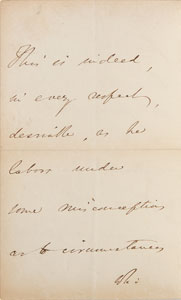 This is indeed,
in every respect,
desirable, as he
labors under
some misconception
as to circumstances